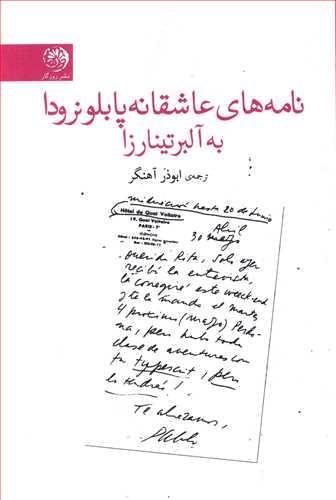 نشر روزگار
نامه‌های عاشقانه پابلو نرودا
به آلبرتینا رزا
ترجمه‌ی ابوذر آهنگر
hasta 20 de junio
Hôtel du Quai Voltaire
19, Quai Voltaire
PARIS - 7e
Abril
30 marzo
Querida Rosa, Solo ayer
recibí la entrevista,
la conseguí este weekend
y te la mando el martes
4 próximo (marzo) Perdo-
na, pero hubo toda
clase de aventuras con
tu typescript, pero
lo tendrás!
Te abrazamos,
Pablo